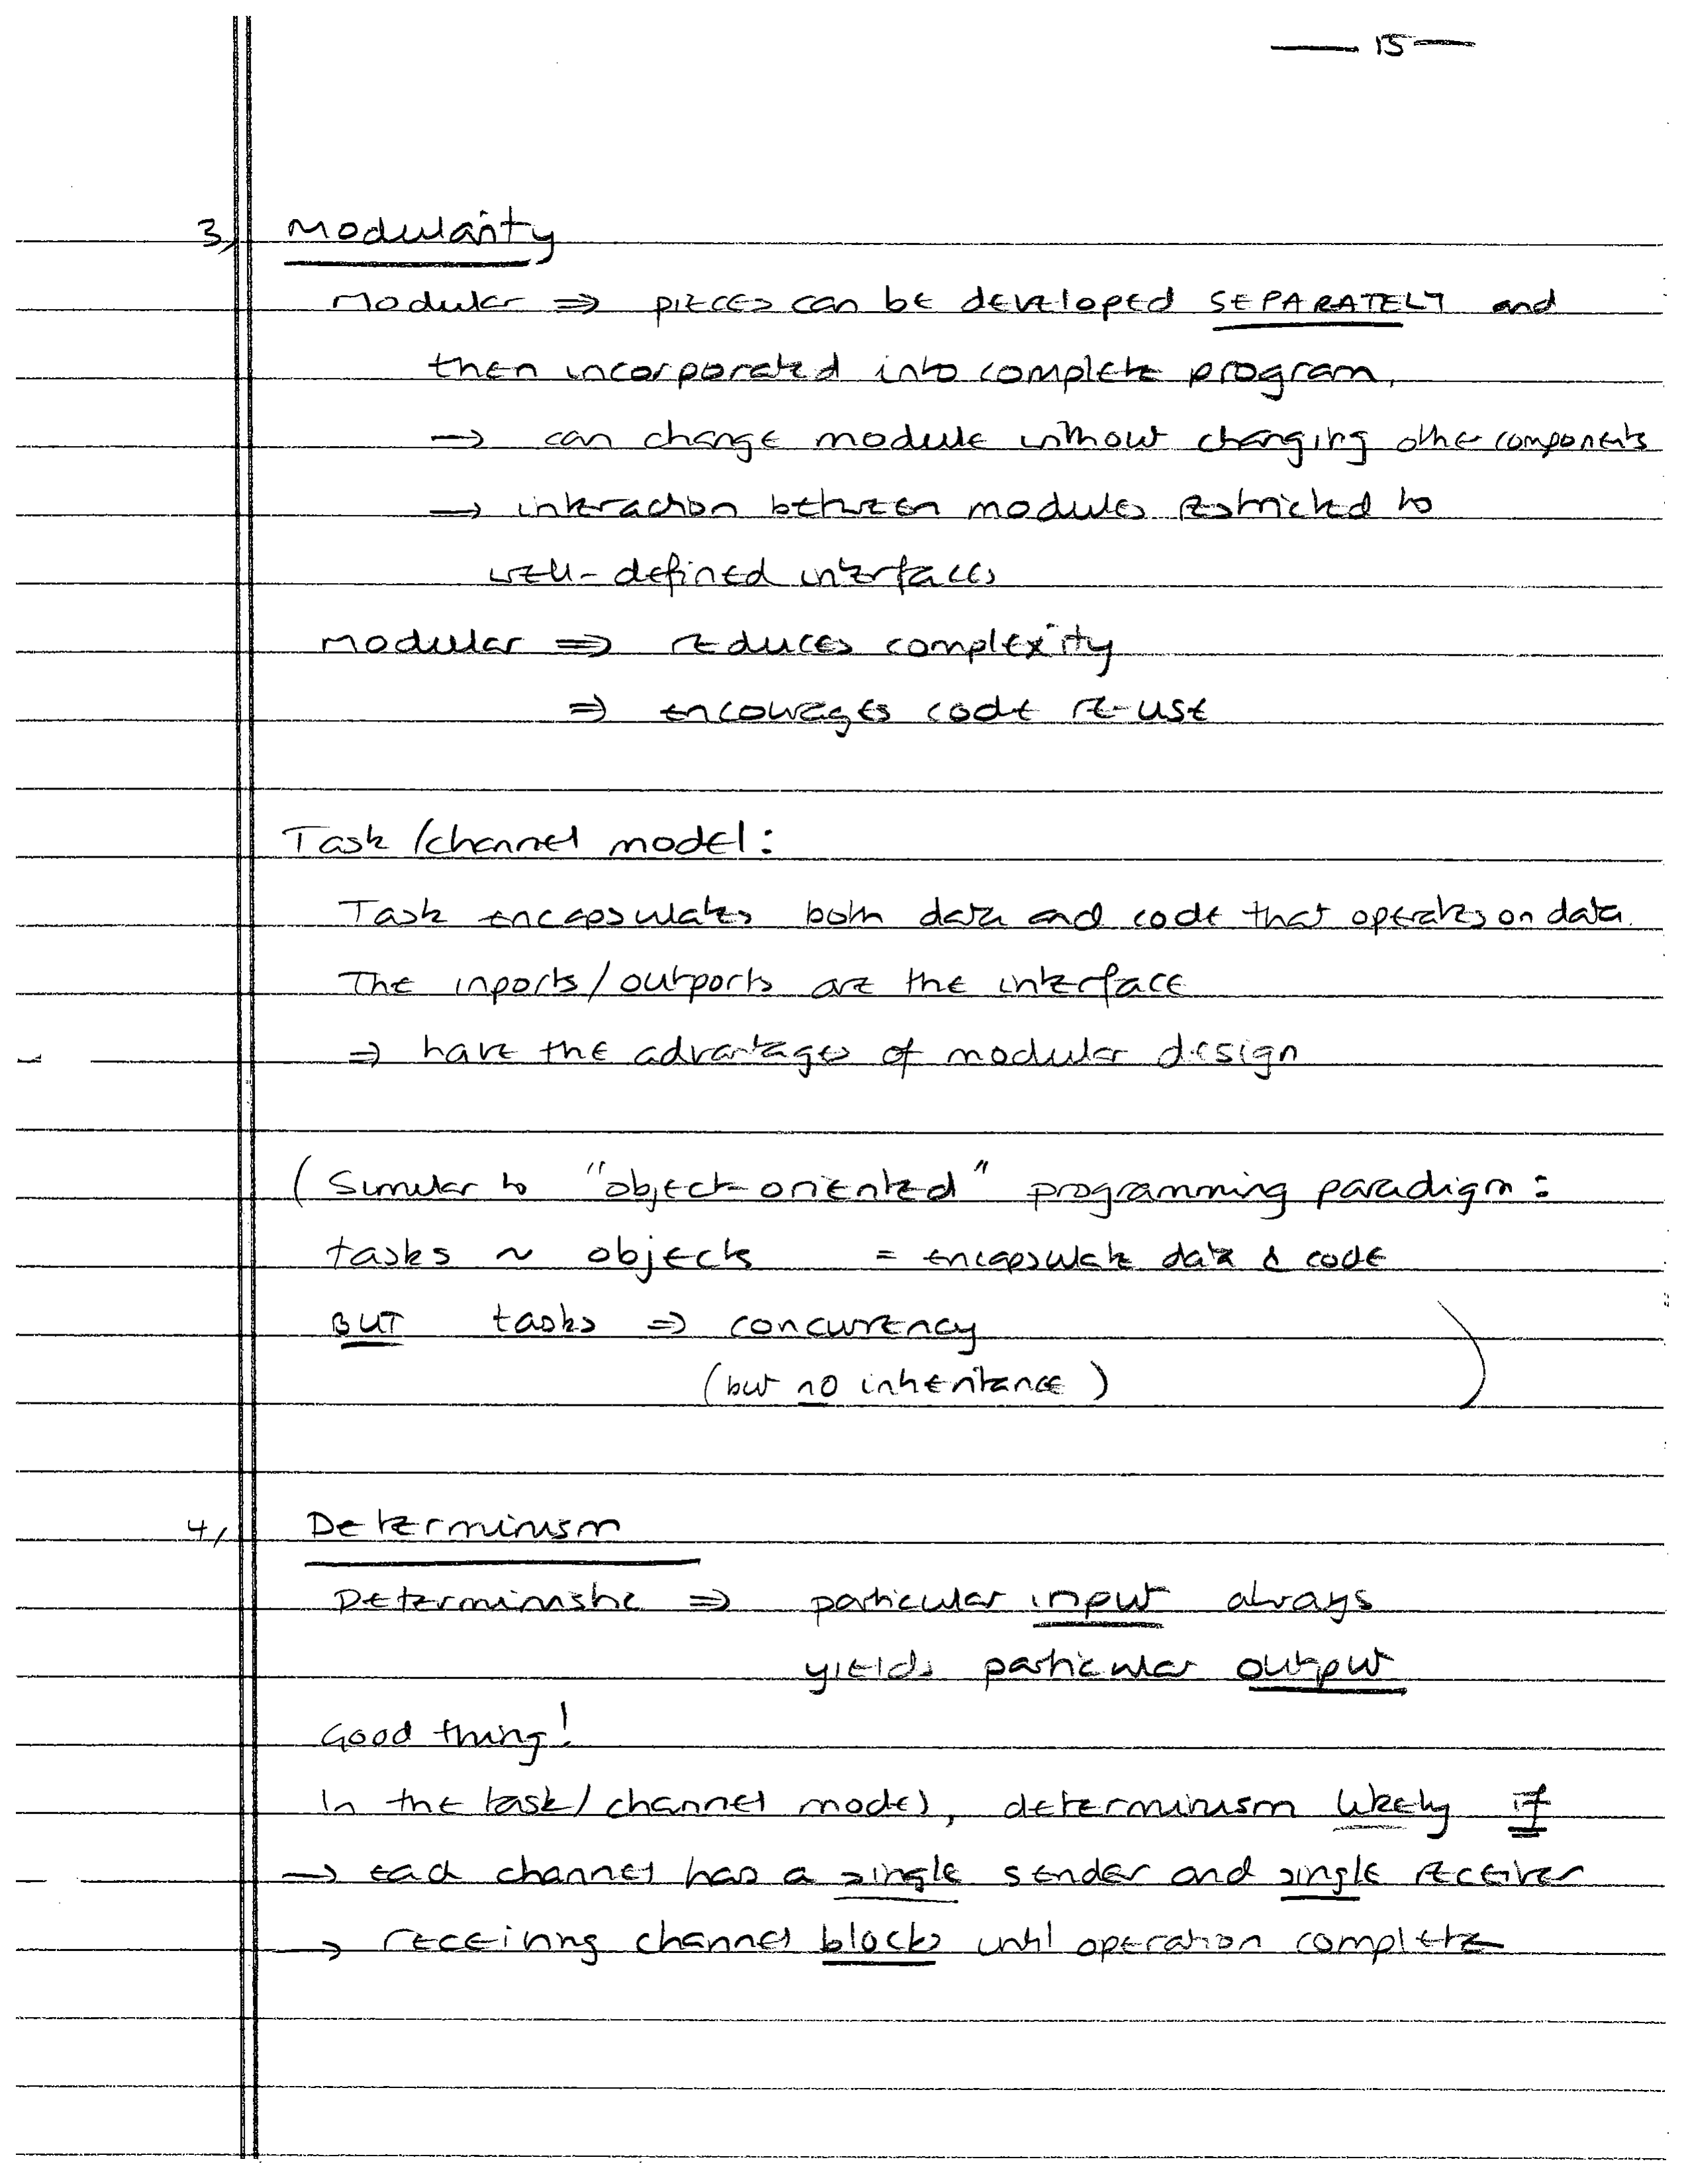 — 15 —
3, Modularity
Modular ⇒ pieces can be developed SEPARATELY and
then incorporated into complete program.
→ can change module without changing other components
→ interaction between modules restricted to
well-defined interfaces
Modular ⇒ reduces complexity
⇒ encourages code re-use
Task/channel model:
Task encapsulates both data and code that operates on data.
The inports/outports are the interface
⇒ have the advantages of modular design
(Similar to "object-oriented" programming paradigm:
tasks ~ objects = encapsulate data & code
BUT tasks ⇒ concurrency
(but no inheritance) )
4, Determinism
Deterministic ⇒ particular input always
yields particular output
Good thing!
In the task/channel model, determinism likely if
→ each channel has a single sender and single receiver
→ receiving channel blocks until operation complete